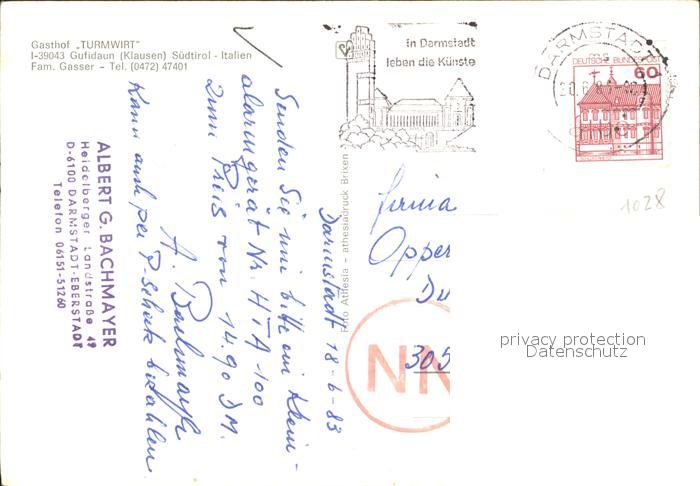 Gasthof „TURMWIRT"
I-39043 Gufidaun (Klausen) Südtirol - Italien
Fam. Gasser - Tel. (0472) 47401
in Darmstadt
leben die Künste
DARMSTADT
DEUTSCHE BUNDESPOST
60
1028
Foto Athesia - athesiadruck Brixen
Darmstadt 18-6-83
Senden Sie mir bitte ein Klein-
alarmgerät Nr. HTA-100
zum Preis von 14.90 DM.
A. Bachmayer
Kann auch per P-Scheck bezahlen
ALBERT G. BACHMAYER
Heidelberger Landstraße 49
D-6100 DARMSTADT-EBERSTADT
Telefon 06151-51260
Firma
Opper
Du
305
NN
privacy protection
Datenschutz